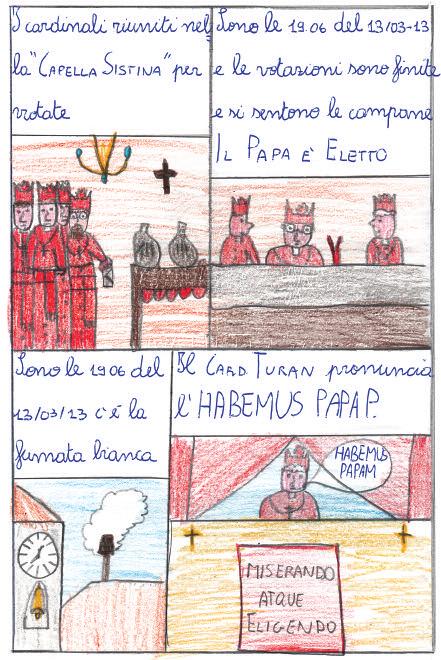 I cardinali riuniti nel
la "CAPELLA SISTINA" per
votate
Sono le 19.06 del 13/03-13
e le votazioni sono finite
e si sentono le campane
IL PAPA È ELETTO
Sono le 1906 del
13/03/13 c'é la
fumata bianca
Il CARD TURAN pronuncia
l'HABEMUS PAPAP.
HABEMUS
PAPAM
MISERANDO
ATQUE
ELIGENDO